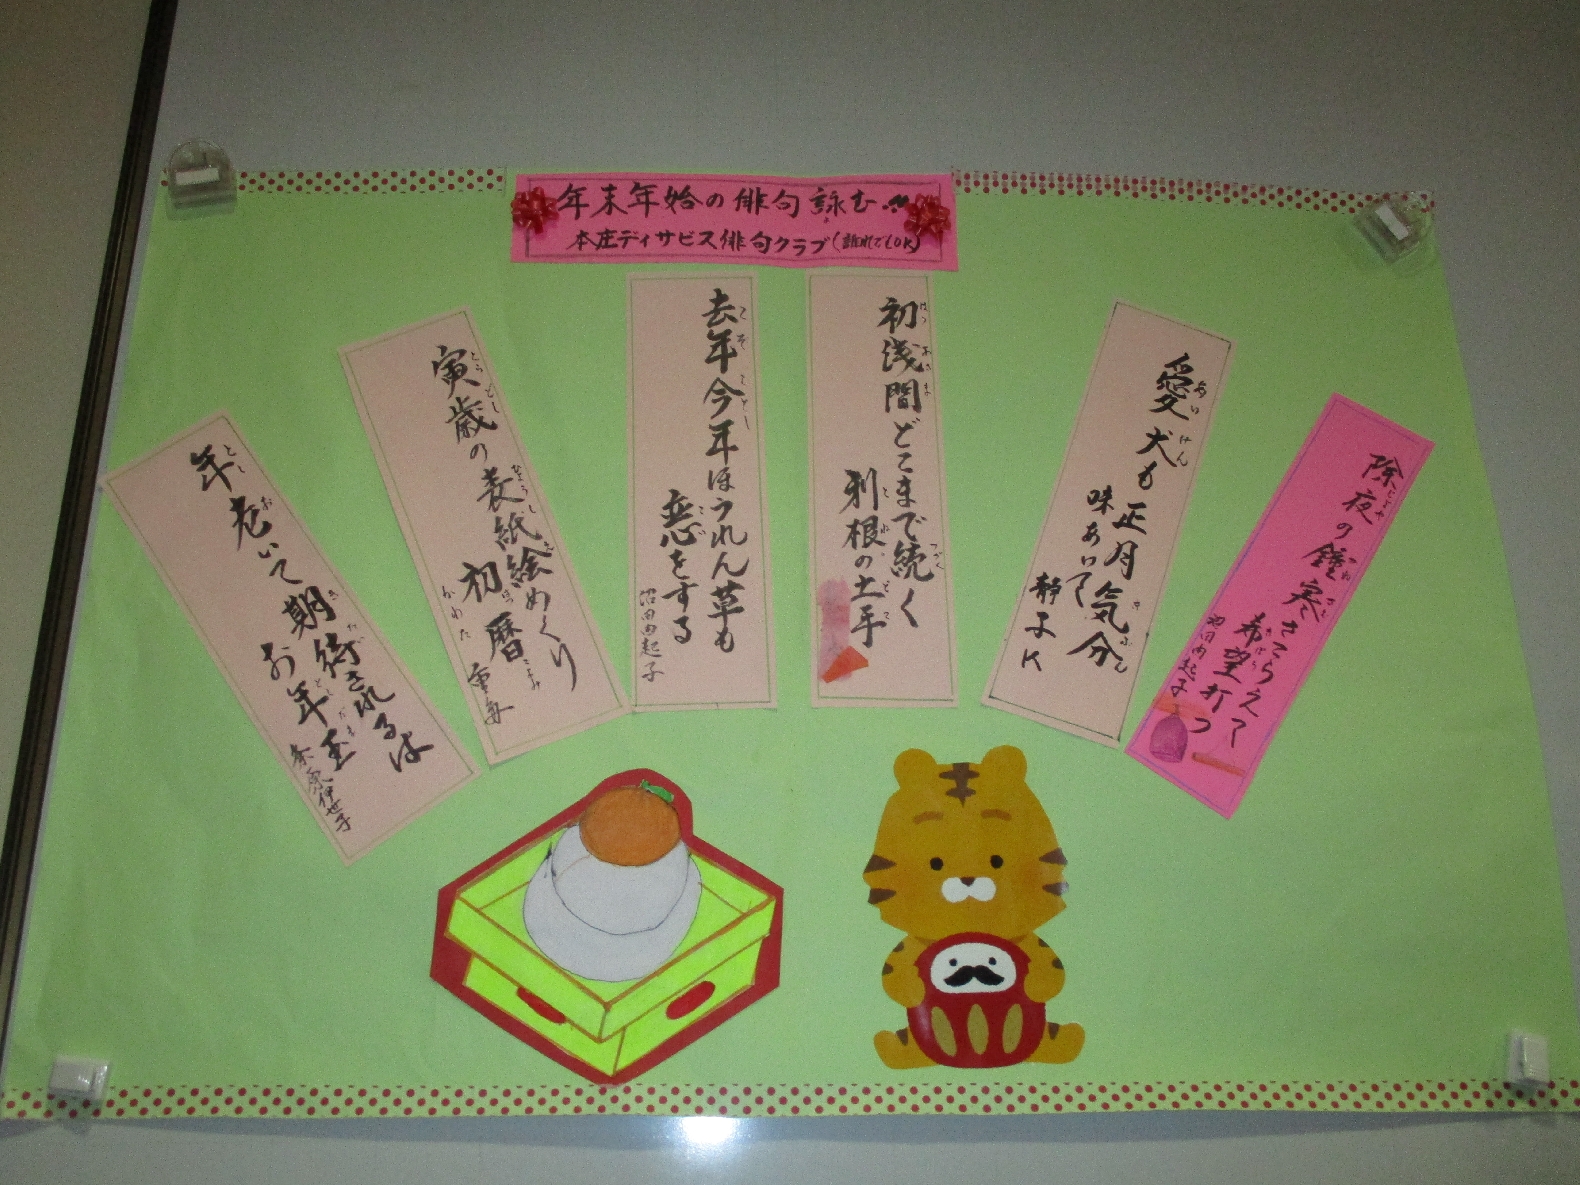 年末年始の俳句詠む!!
本庄ディサビス俳句クラブ(誰れでもOK)
除夜の鐘寒さこらえて
希望打つ
愛犬も正月気分
味あいて
静子K
初浅間どこまで続く
利根の土手
去年今年ほうれん草も
恋をする
沼田由起子
寅歳の表紙絵めくり
初暦
かわた
年老いて期待されるは
お年玉